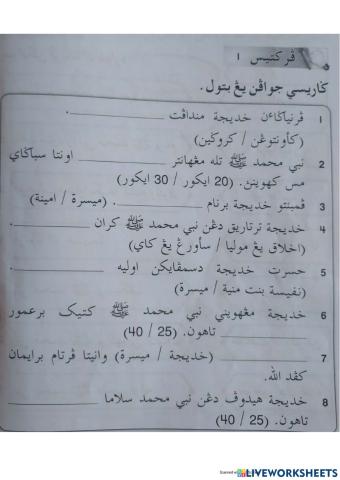 ڤرکتيس ١
ݢاريسي جواڤن يڠ بتول.
1 ڤرنياݢاءن خديجة منداڤت ____________.
(کأونتوڠن / کروݢين)
2 نبي محمد ﷺ تله مڠهانتر ____________ اونتا سباݢاي
مس کهوينن. (20 ايکور / 30 ايکور)
3 ڤمبنتو خديجة برنام ____________. (ميسرة / امينة)
4 خديجة ترتاريق دڠن نبي محمد ﷺ کران ____________.
(اخلاق يڠ موليا / سأورڠ يڠ کاي)
5 حسرت خديجة دسمڤايکن اوليه ____________.
(نفيسة بنت منية / ميسرة)
6 خديجة مڠهويني نبي محمد ﷺ کتيک برعمور
____________ تاهون. (25 / 40)
7 ____________ (خديجة / ميسرة) وانيتا ڤرتام برايمان
کڤد الله.
8 خديجة هيدوڤ دڠن نبي محمد سلاما ____________
تاهون. (25 / 40)
LIVEWORKSHEETS